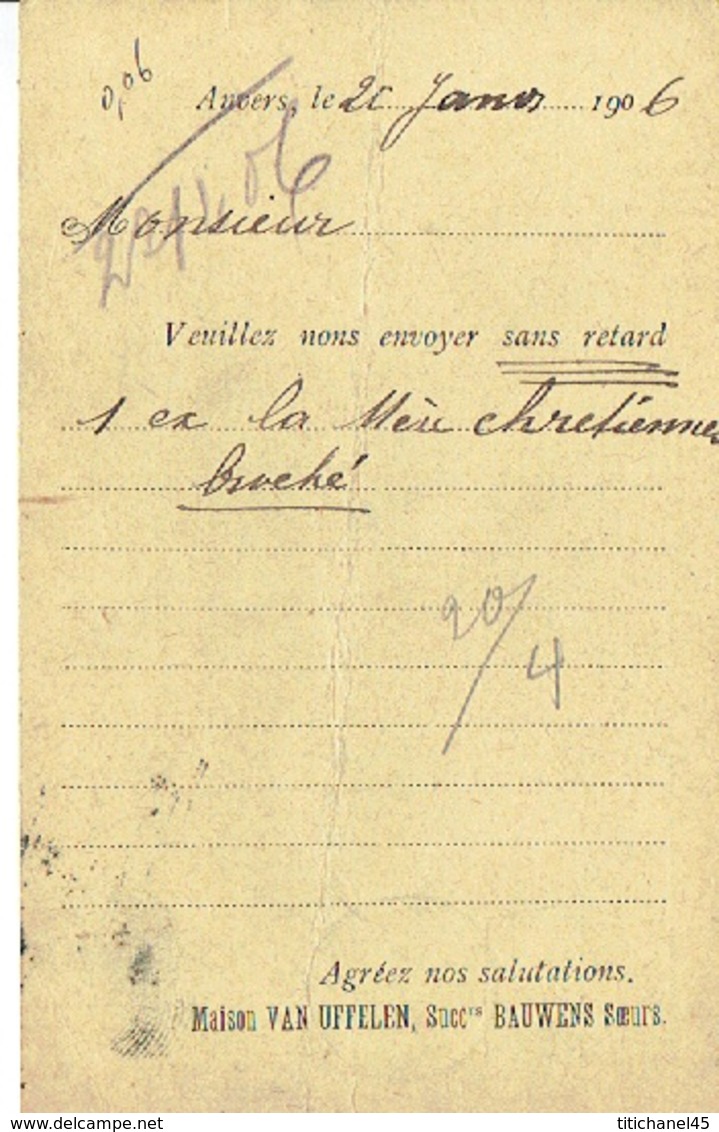 0,06
Anvers, le 20 Janv 1906
Monsieur
Veuillez nous envoyer sans retard
1 ex la Mère chretienne
broché
20/4
Agréez nos salutations.
Maison VAN UFFELEN, Succrs BAUWENS Sœurs.
titichanel45